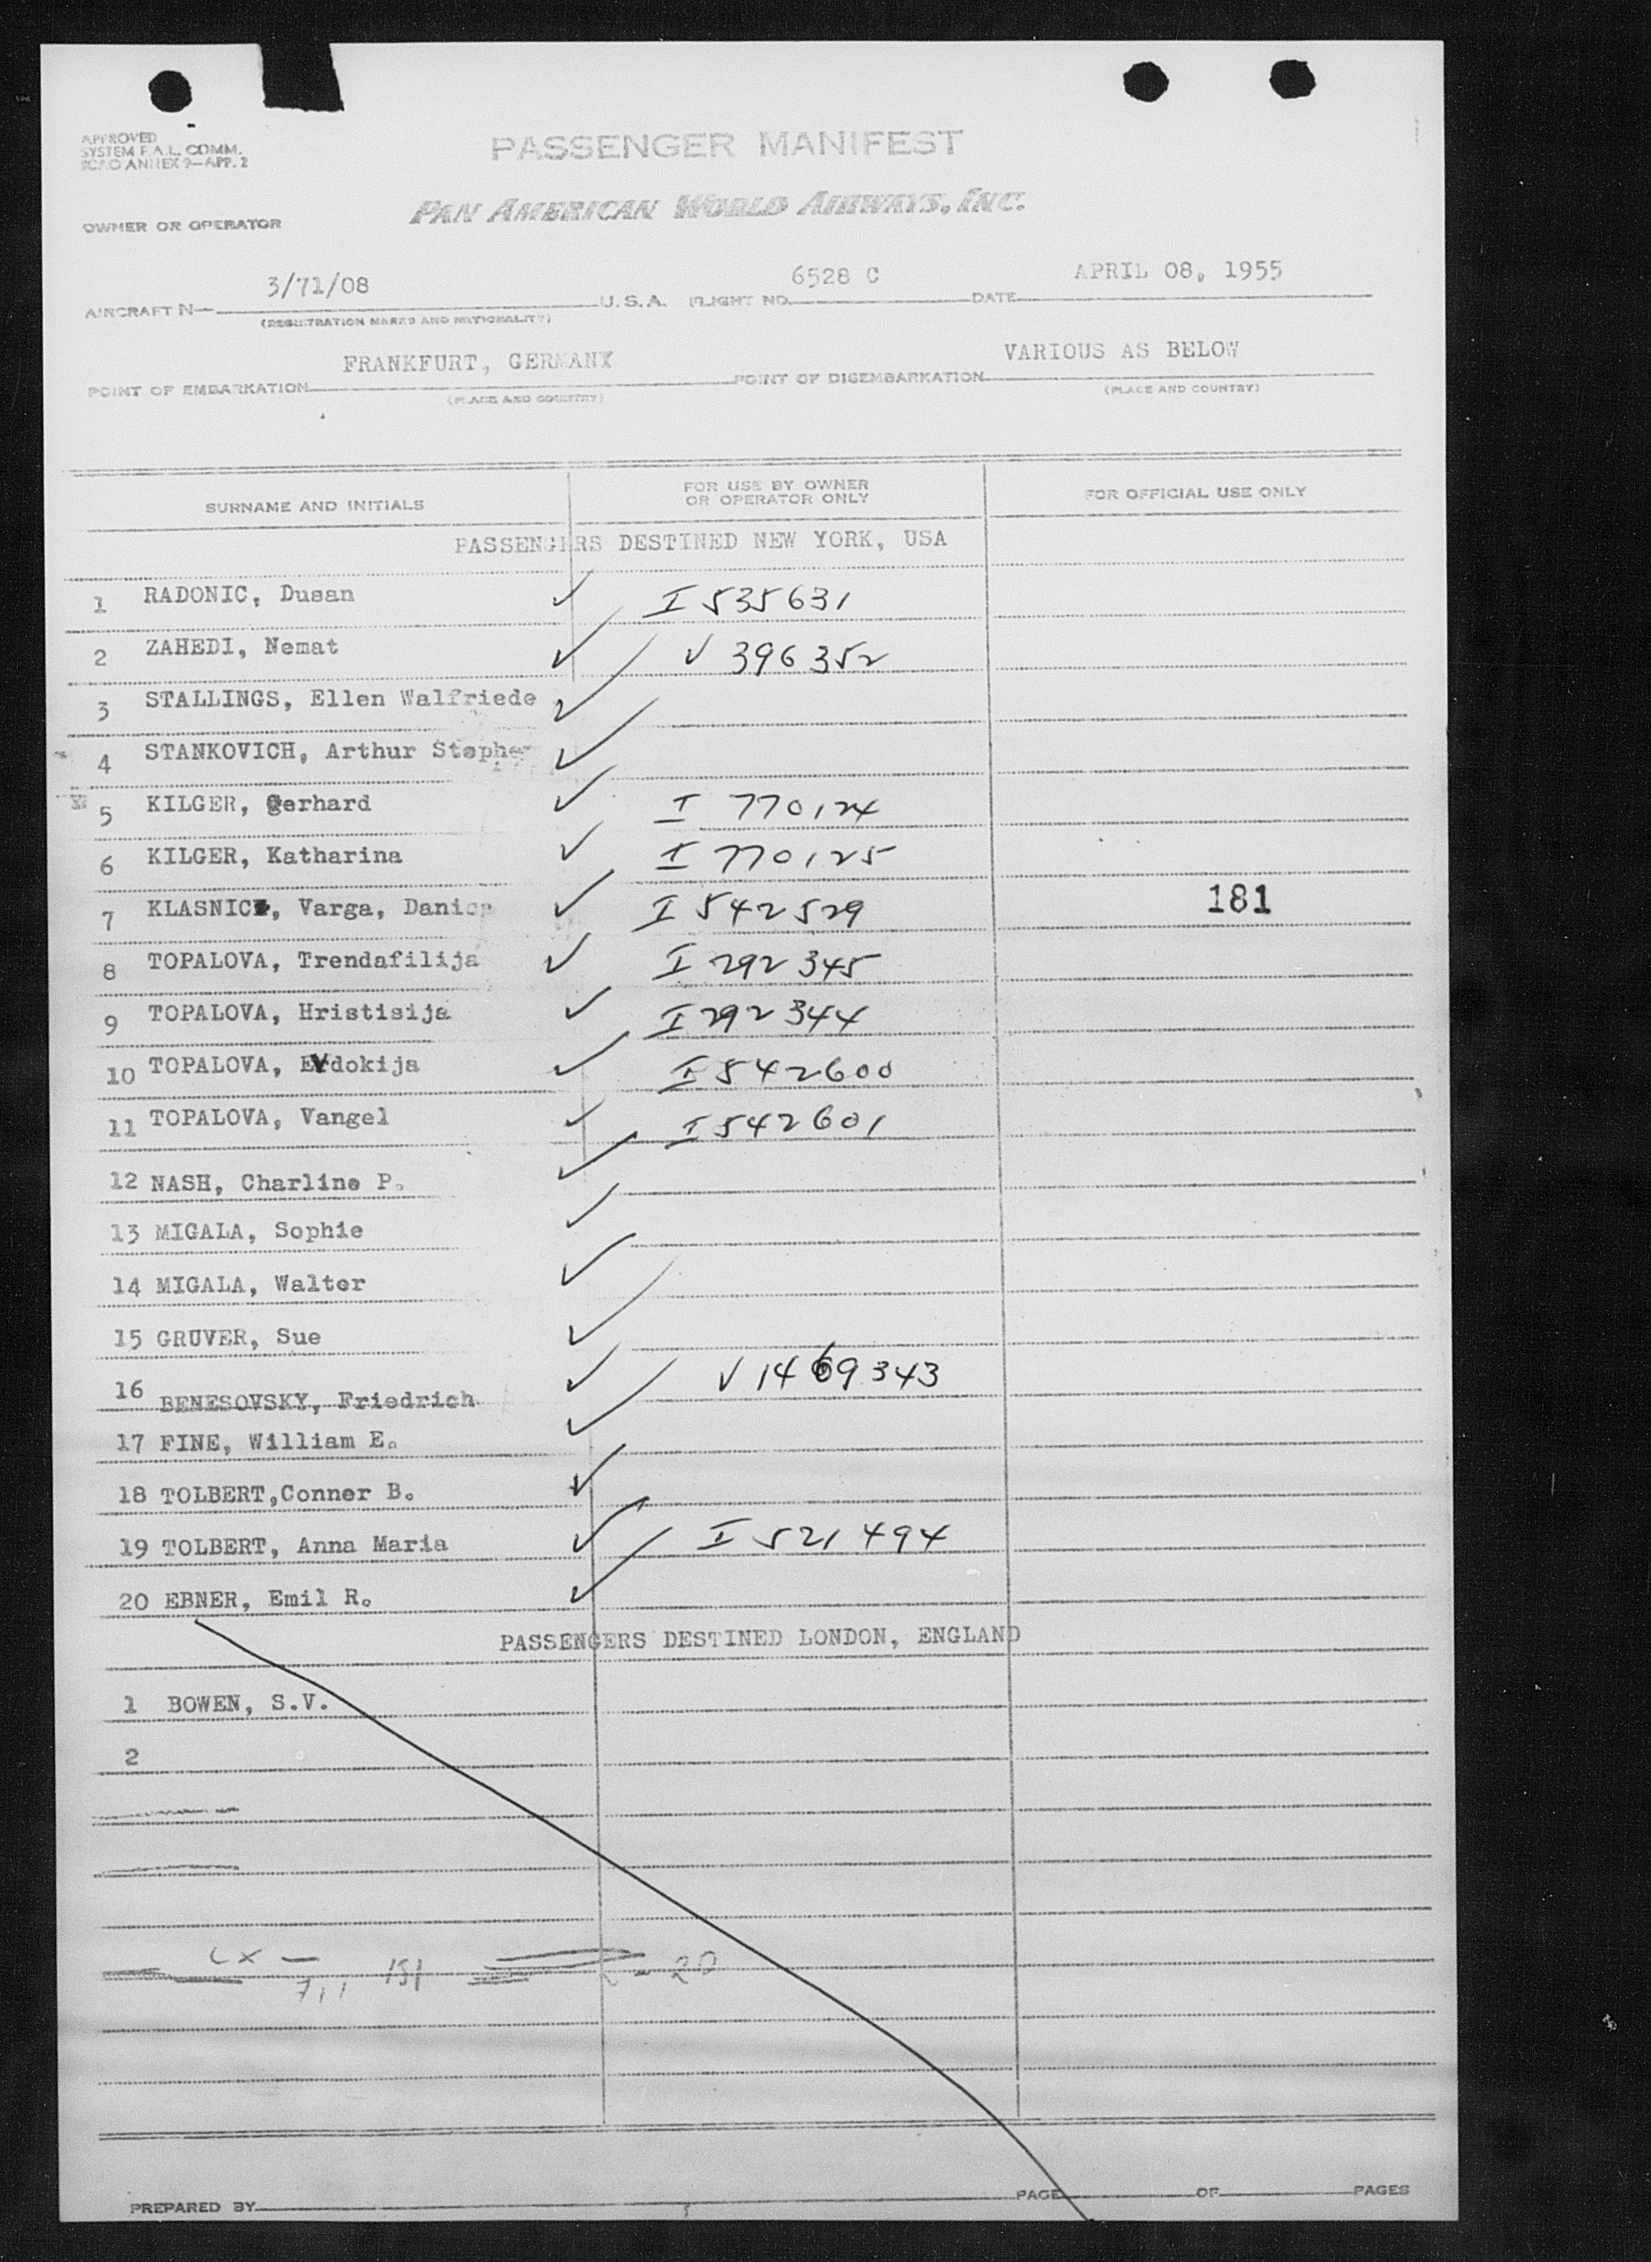 APPROVED
SYSTEM F.A.L. COMM.
ICAO ANNEX 9—APP. 2
PASSENGER MANIFEST
OWNER OR OPERATOR PAN AMERICAN WORLD AIRWAYS, INC.
3/71/08 6528 C APRIL 08, 1955
AIRCRAFT N— U.S.A. FLIGHT NO. DATE
(REGISTRATION MARKS AND NATIONALITY)
FRANKFURT, GERMANY VARIOUS AS BELOW
POINT OF EMBARKATION POINT OF DISEMBARKATION
(PLACE AND COUNTRY) (PLACE AND COUNTRY)
SURNAME AND INITIALS FOR USE BY OWNER OR OPERATOR ONLY FOR OFFICIAL USE ONLY
PASSENGERS DESTINED NEW YORK, USA
1 RADONIC, Dusan ✓ I 535631
2 ZAHEDI, Nemat ✓ V 396352
3 STALLINGS, Ellen Walfriede ✓
4 STANKOVICH, Arthur Stephen ✓
5 KILGER, Gerhard ✓ I 770124
6 KILGER, Katharina ✓ I 770125
7 KLASNIC, Varga, Danica ✓ I 542529 181
8 TOPALOVA, Trendafilija ✓ I 292345
9 TOPALOVA, Hristisija ✓ I 292344
10 TOPALOVA, Evdokija ✓ I 542600
11 TOPALOVA, Vangel ✓ I 542601
12 NASH, Charline P. ✓
13 MIGALA, Sophie ✓
14 MIGALA, Walter ✓
15 GRUVER, Sue ✓
16 BENESOVSKY, Friedrich ✓ V 1469343
17 FINE, William E. ✓
18 TOLBERT,Conner B. ✓
19 TOLBERT, Anna Maria ✓ I 521494
20 EBNER, Emil R. ✓
PASSENGERS DESTINED LONDON, ENGLAND
1 BOWEN, S.V.
2
PREPARED BY PAGE OF PAGES